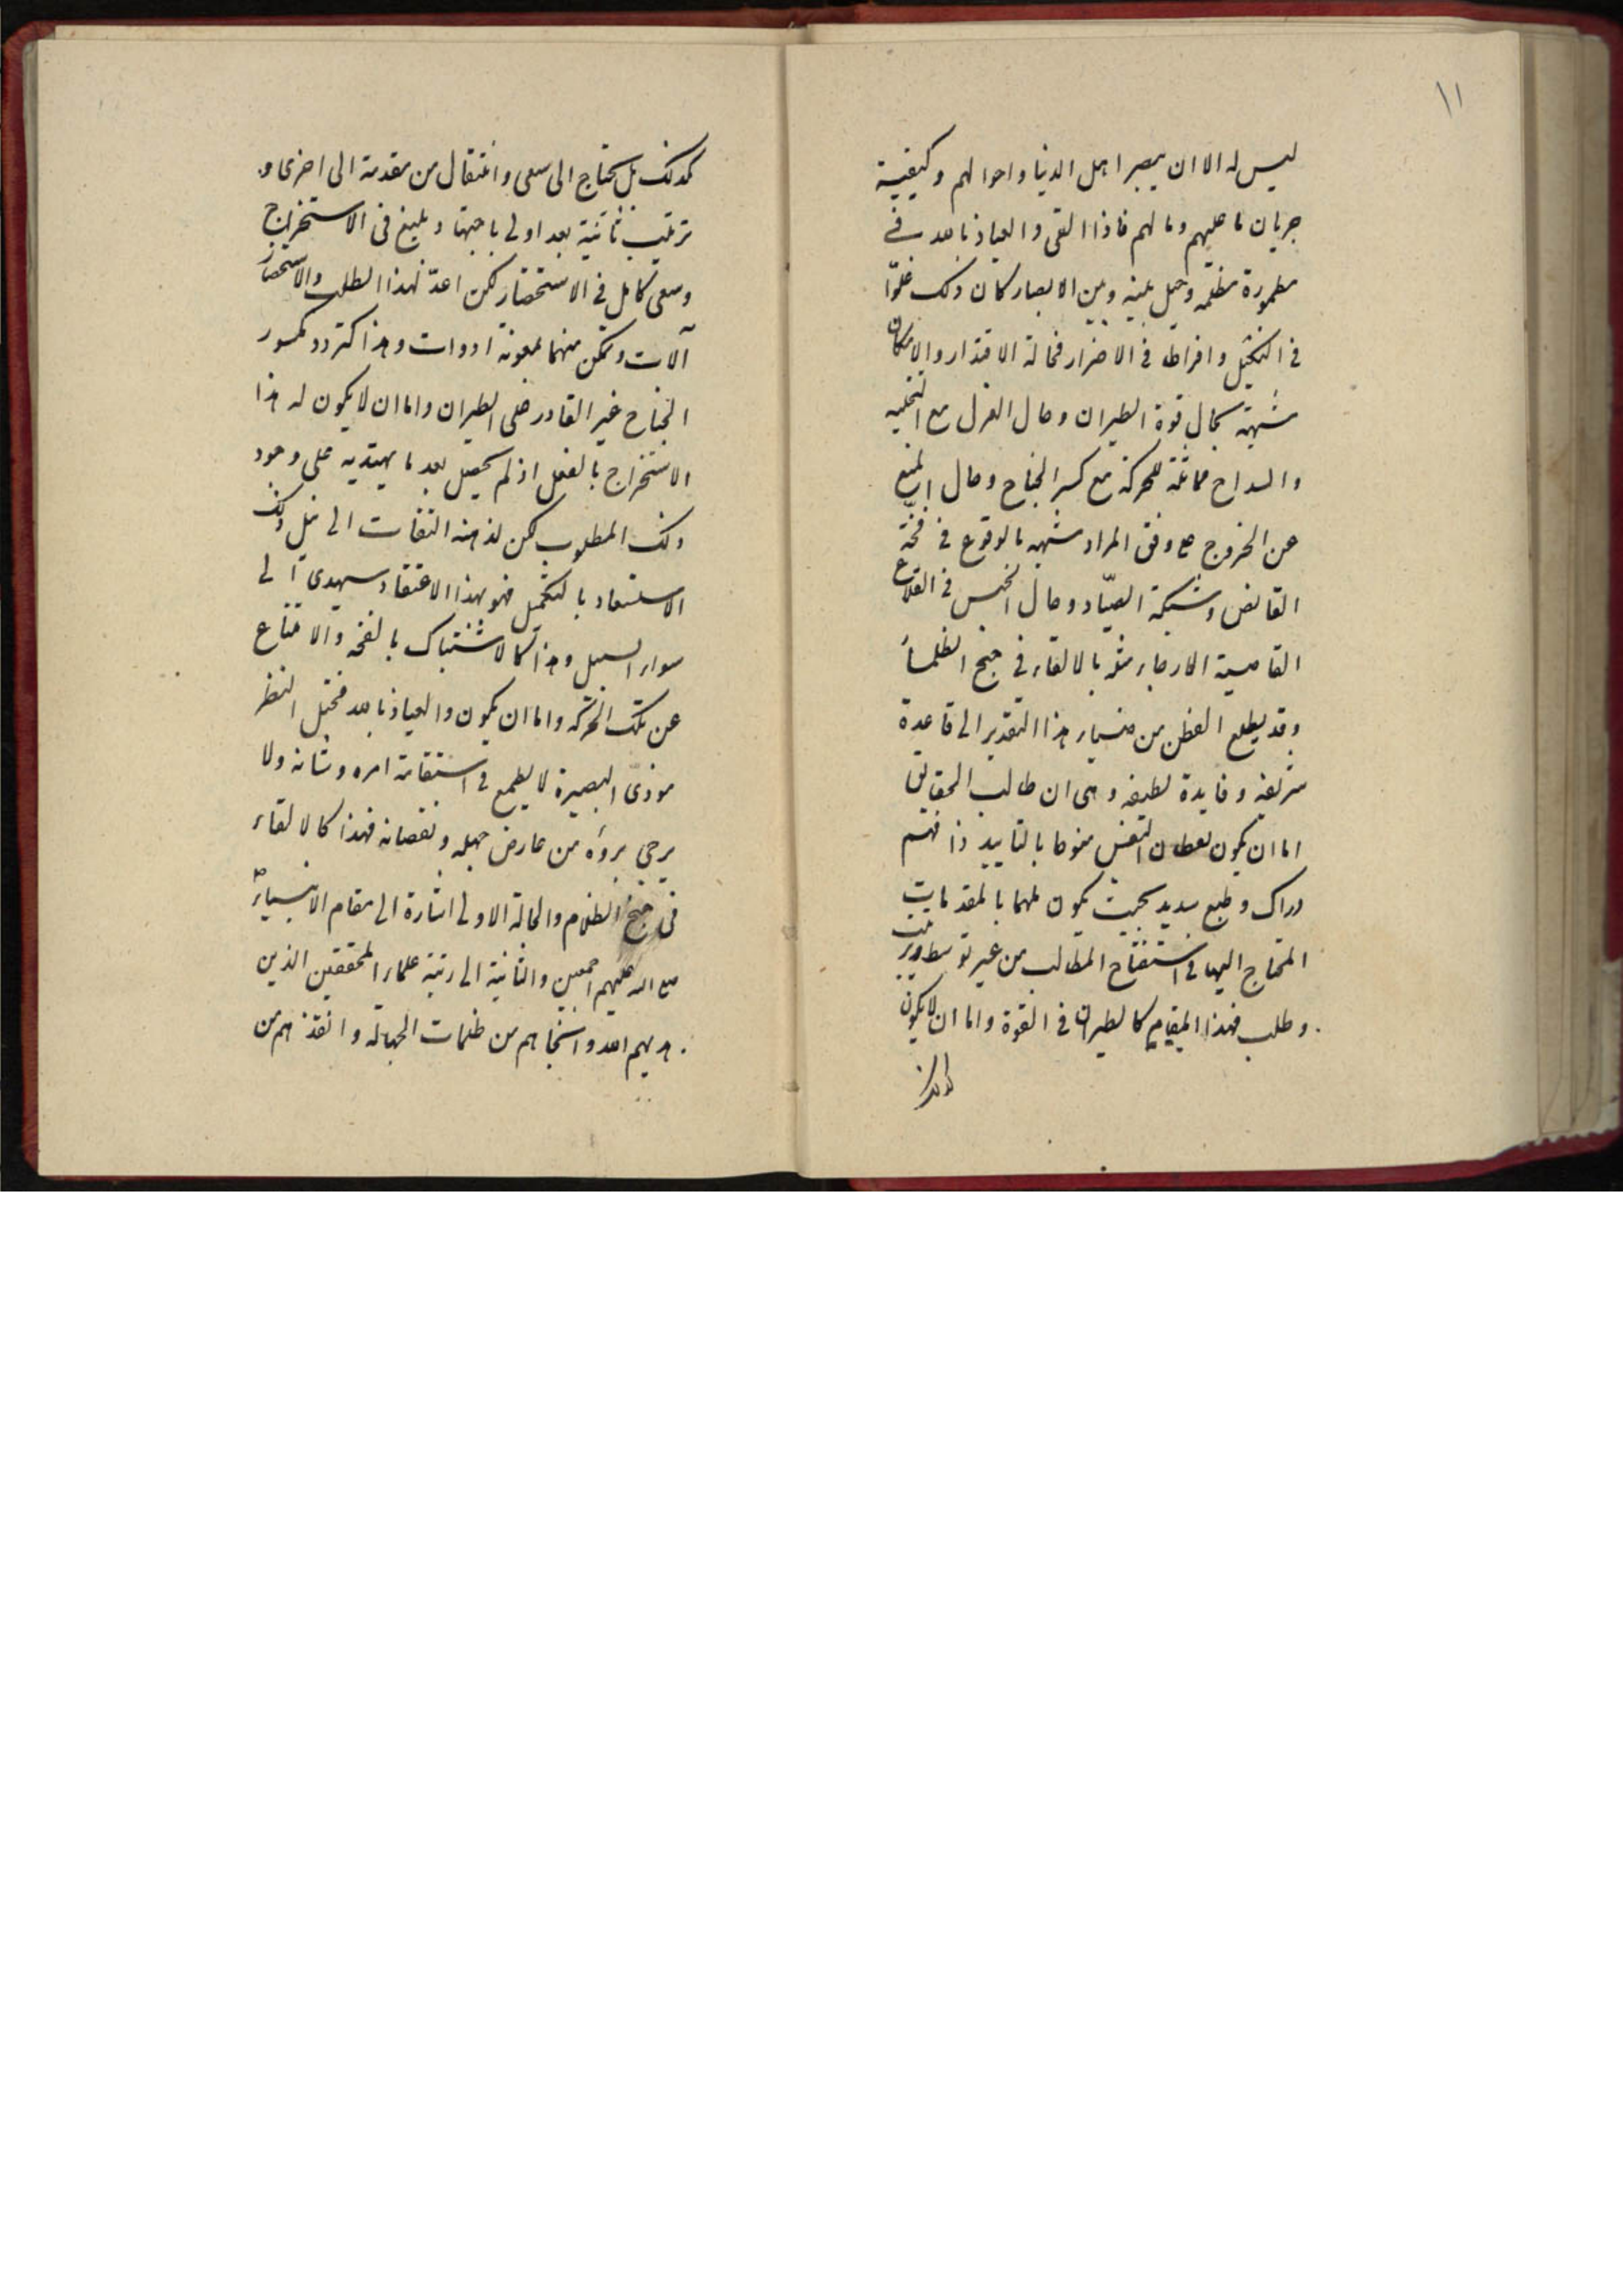 ١١
ليس له الا ان يبصر اهل الدنيا واحوالهم وكيفية
جريان ما عليهم وما لهم فاذا القى والعياذ بالله في
مطمورة مظلمة وحيل بينه وبين الابصار كان ذلك غلوّا
في التنكيل وافراط في الاضرار فحالة الاقتدار والامكان
شبهة بحال قوة الطيران وحال العزل مع التخلية
والسراح مماثلة للحركة مع كسر الجناح وحال المنع
عن الخروج على وفق المراد شبهه بالوقوع في فخّة
القانص وشبكة الصيّاد وحال الحبس في القلاع
القاصية الارجاء مثله بالالقاء في جنح الظلماء
وقد يطلع الفطن من ضياء هذا التقدير الى قاعدة
شريفة وفايدة لطيفه وهى ان طالب الحقايق
اما ان يكون يقظان النفس منوها بالتاييد ذا فهم
دراك وطبع سديد بحيث يكون ملهما بالمقدمات
المحتاج اليها في استفتاح المطالب من غير توسط ترتيب
وطلب فهذا المقام كالطيران في القوة واما ان لا يكون
كذلك
كذلك بل يحتاج الى سعى وانتقال من مقدمة الى اخرى و
ترتيب ثانية بعد اولى باجتهاد بليغ في الاستخراج
وسعى كامل في الاستحضار لكن اعدّ لهذا الطلب والاستحضار
آلات وتمكن منهما بمعونة ادوات وهذا كتردد مكسور
الجناح غير القادر على الطيران واما ان لا يكون له هذا
الاستخراج بالفعل اذ لم يحصل بعد ما يهتدى به على وجود
ذلك المطلوب لكن لذهنه التفات الى نيل ذلك
الاستسعاد بالتكميل فهو بهذا الاعتقاد سيهدى الى
سواء السبيل وهذا كالاشتباك بالفخه والامتناع
عن تلك الحركه واما ان يكون والعياذ بالله مختل النظر
موذىّ البصيرة لا يطمع في استقامة امره وشانه ولا
يرجى برؤه من عارض جهله ونقصانه فهذا كالالقاء
في جنح الظلام والحالة الاولى اشارة الى مقام الانبياء ص
مع اله عليهم اجمعين والثانية الى رتبة علماء المحققين الذين
هديهم الله وانجاهم من ظلمات الجهالة وانقذهم من